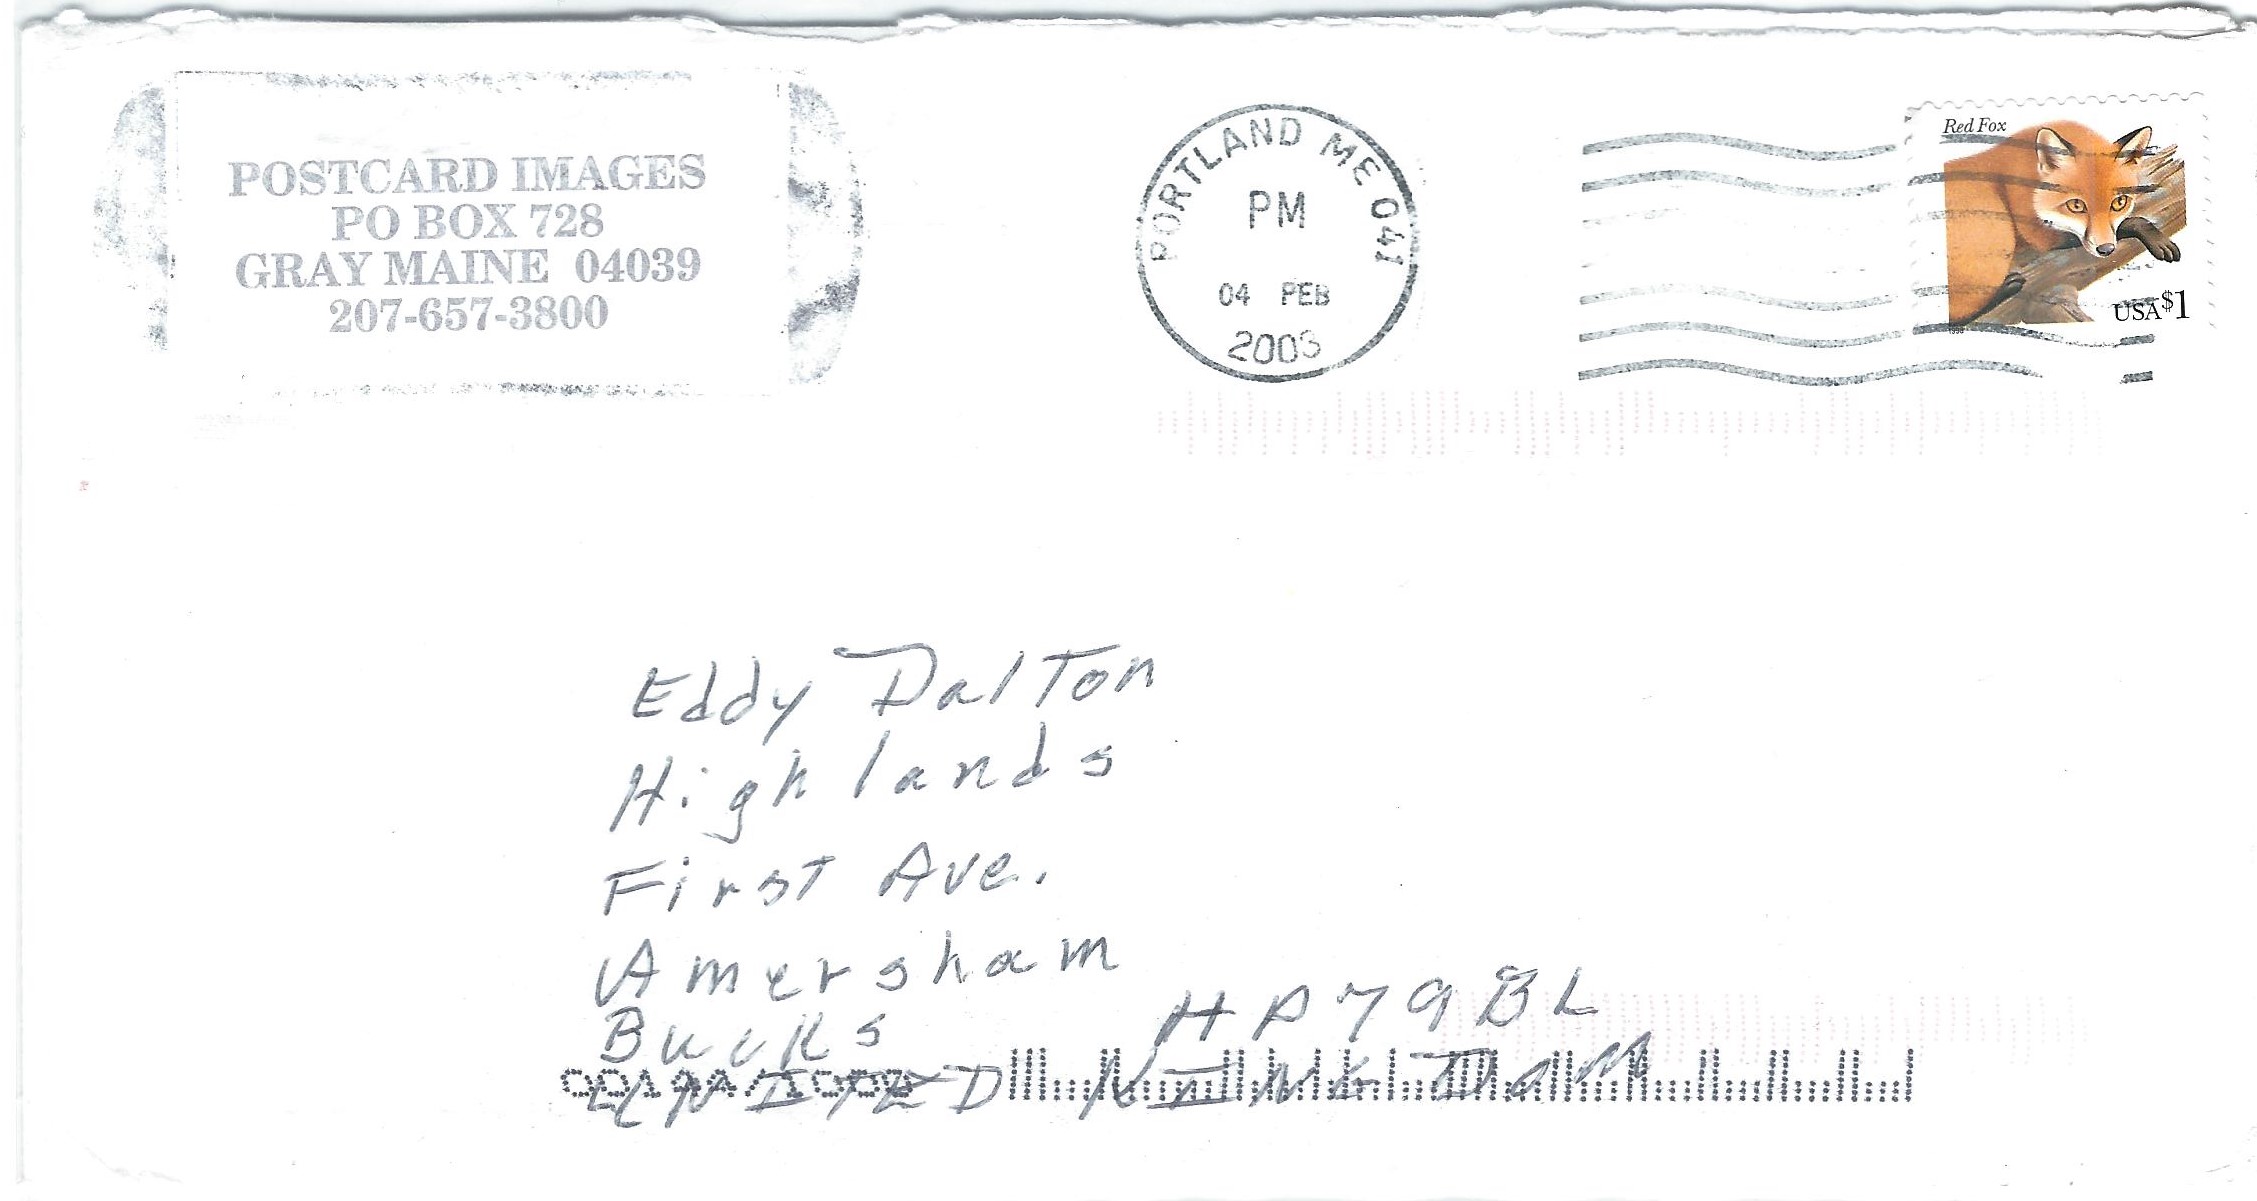 POSTCARD IMAGES
PO BOX 728
GRAY MAINE 04039
207-657-3800
PORTLAND ME 041
PM
04 FEB
2003
Red Fox
USA $1
1998
Eddy Dalton
Highlands
First Ave.
Amersham
Bucks HP7 9BL
UNITED KINGDOM